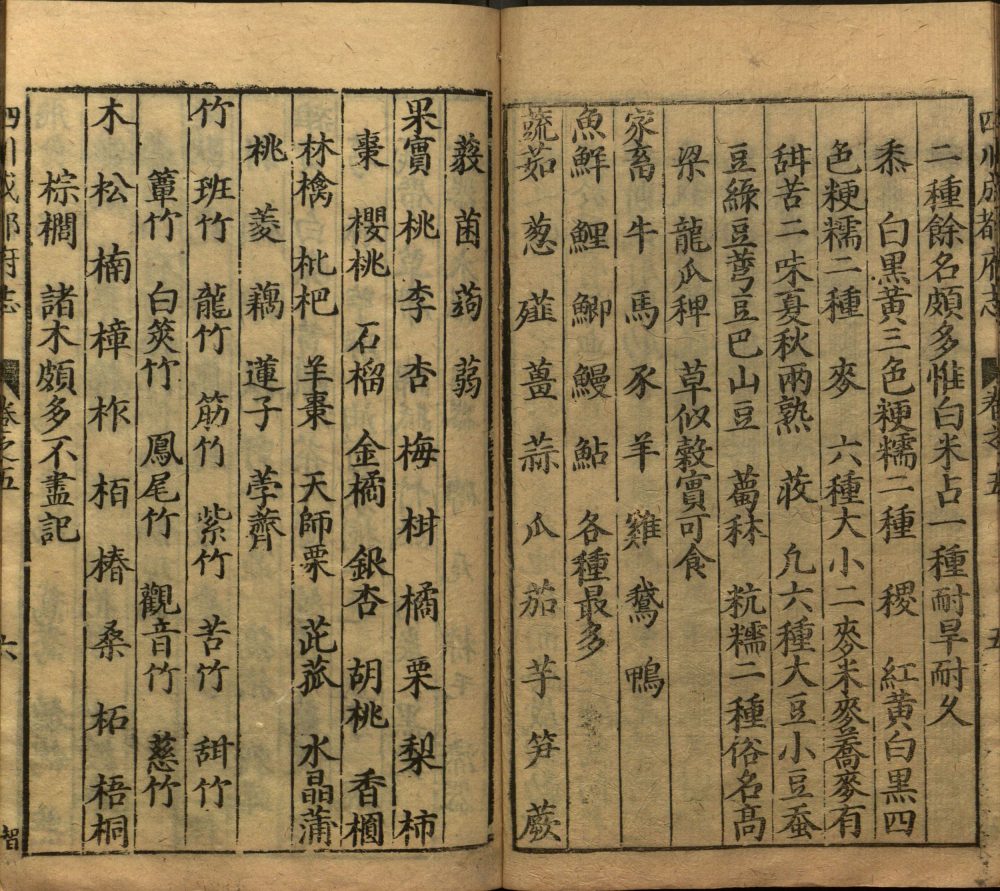 四川成都府志 卷之五 五
二種餘名頗多惟白米占一種耐旱耐久
黍 白黑黃三色粳糯二種 稷 紅黃白黑四
色粳糯二種 麥 六種大小二麥米麥蕎麥有
甜苦二味夏秋兩熟 菽 凢六種大豆小豆蚕
豆綠豆䓫豆巴山豆 蔔秫 秔糯二種俗名髙
梁 龍瓜稗 草似穀實可食
家畜 牛 馬 豕 羊 雞 鵞 鴨
魚鮮 鯉 鯽 鰻 鮎 各種最多
蔬茹 葱 薤 薑 蒜 瓜 茄 芋 笋 蕨
菌 蒟 蒻
果實 桃 李 杏 梅 柑 橘 栗 梨 柿
棗 櫻桃 石榴 金橘 銀杏 胡桃 香櫃
林檎 枇杷 羊棗 天師栗 茈菰 水晶蒲
桃 菱 藕 蓮子 荸薺
竹 班竹 龍竹 筋竹 紫竹 苦竹 甜竹
簟竹 白筴竹 鳳尾竹 觀音竹 慈竹
木 松 楠 樟 柞 栢 椿 桑 柘 梧桐
棕櫚 諸木頗多不盡記
四川成都府志 卷之五 六 智